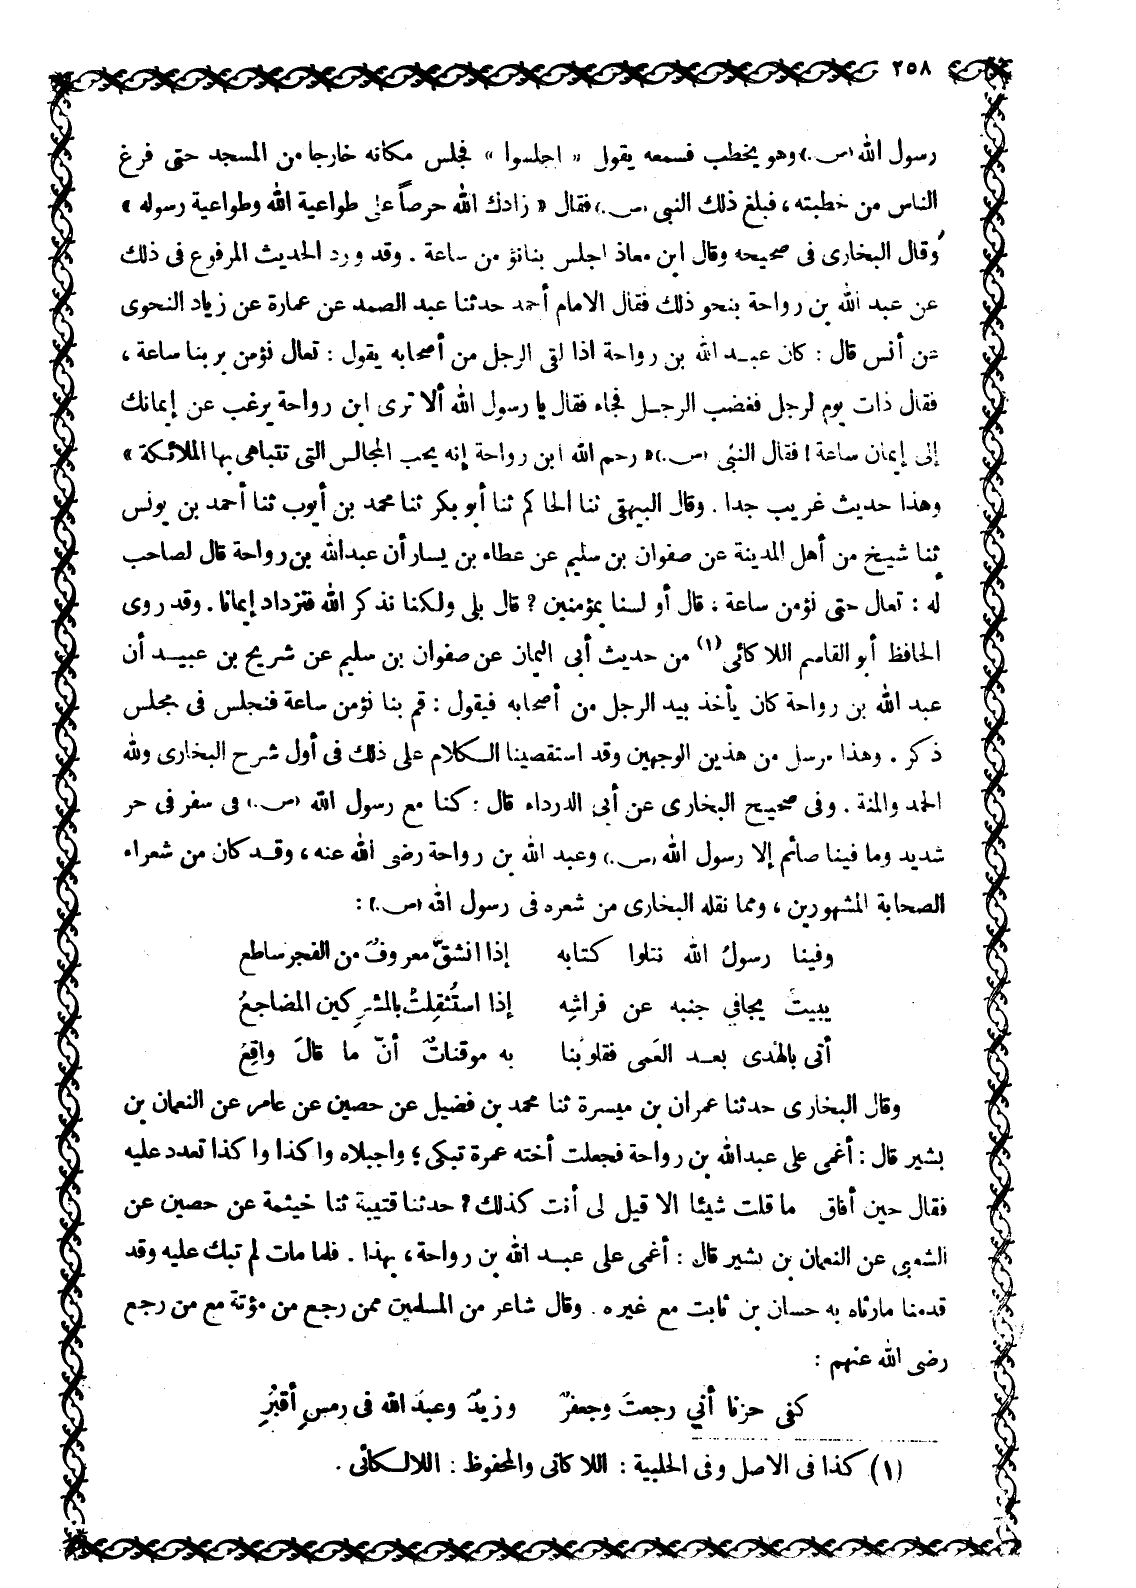 ٢٥٨
رسول الله (س.) وهو يخطب فسمعه يقول « اجلسوا » فجلس مكانه خارجا من المسجد حتى فرغ
الناس من خطبته ، فبلغ ذلك النبى (س.) فقال « زادك الله حرصاً على طواعية الله وطواعية رسوله »
وقال البخارى فى صحيحه وقال ابن معاذ اجلس بنا نؤمن ساعة . وقد ورد الحديث المرفوع فى ذلك
عن عبد الله بن رواحة بنحو ذلك فقال الامام أحمد حدثنا عبد الصمد عن عمارة عن زياد النحوى
عن أنس قال : كان عبد الله بن رواحة اذا لقى الرجل من أصحابه يقول : تعال نؤمن بربنا ساعة ،
فقال ذات يوم لرجل فغضب الرجل فجاء فقال يا رسول الله ألا ترى ابن رواحة يرغب عن إيمانك
إلى إيمان ساعة ! فقال النبى (س.) « رحم الله ابن رواحة إنه يحب المجالس التى تتباهى بها الملائكة »
وهذا حديث غريب جدا . وقال البيهقى ثنا الحاكم ثنا أبو بكر ثنا محمد بن أيوب ثنا أحمد بن يونس
ثنا شيخ من أهل المدينة عن صفوان بن سليم عن عطاء بن يسار أن عبدالله بن رواحة قال لصاحب
له : تعال حتى نؤمن ساعة ، قال أو لسنا بمؤمنين ? قال بلى ولكنا نذكر الله فنزداد إيمانا . وقد روى
الحافظ أبو القاسم اللاكائى (١) من حديث أبى اليمان عن صفوان بن سليم عن شريح بن عبيد أن
عبد الله بن رواحة كان يأخذ بيد الرجل من أصحابه فيقول : قم بنا نؤمن ساعة فنجلس فى مجلس
ذكر . وهذا مرسل من هذين الوجهين وقد استقصينا الكلام على ذلك فى أول شرح البخارى ولله
الحمد والمنة . وفى صحيح البخارى عن أبى الدرداء قال : كنا مع رسول الله (س.) فى سفر فى حر
شديد وما فينا صائم إلا رسول الله (س.) وعبد الله بن رواحة رضى الله عنه ، وقد كان من شعراء
الصحابة المشهورين ، ومما نقله البخارى من شعره فى رسول الله (س.) :
وفينا رسولُ الله نتلوا كتابه إذا انشقّ معروفٌ من الفجر ساطع
يبيتَ يجافي جنبه عن فراشِه إذا استُثقِلتْ بالمشركين المضاجعُ
أتى بالهدى بعد العَمى فقلوبُنا به موقناتٌ أنّ ما قالَ واقِعُ
وقال البخارى حدثنا عمران بن ميسرة ثنا محمد بن فضيل عن حصين عن عامر عن النعمان بن
بشير قال : أغمى على عبدالله بن رواحة فجعلت أخته عمرة تبكى ؛ واجبلاه واكذا واكذا تعدد عليه
فقال حين أفاق ما قلت شيئا الا قيل لى أنت كذلك ? حدثنا قتيبة ثنا خيثمة عن حصين عن
الشعبى عن النعمان بن بشير قال : أغمى على عبد الله بن رواحة ، بهذا . فلما مات لم تبك عليه وقد
قدمنا مارثاه به حسان بن ثابت مع غيره . وقال شاعر من المسلمين ممن رجع من مؤتة مع من رجع
رضى الله عنهم :
كفى حزنا أني رجعتَ وجعفرٌ وزيدٌ وعبدَ الله فى رمسِ أقبُرِ
(١) كذا فى الاصل وفى الحلبية : اللاكاتى والمحفوظ : اللالكائى .